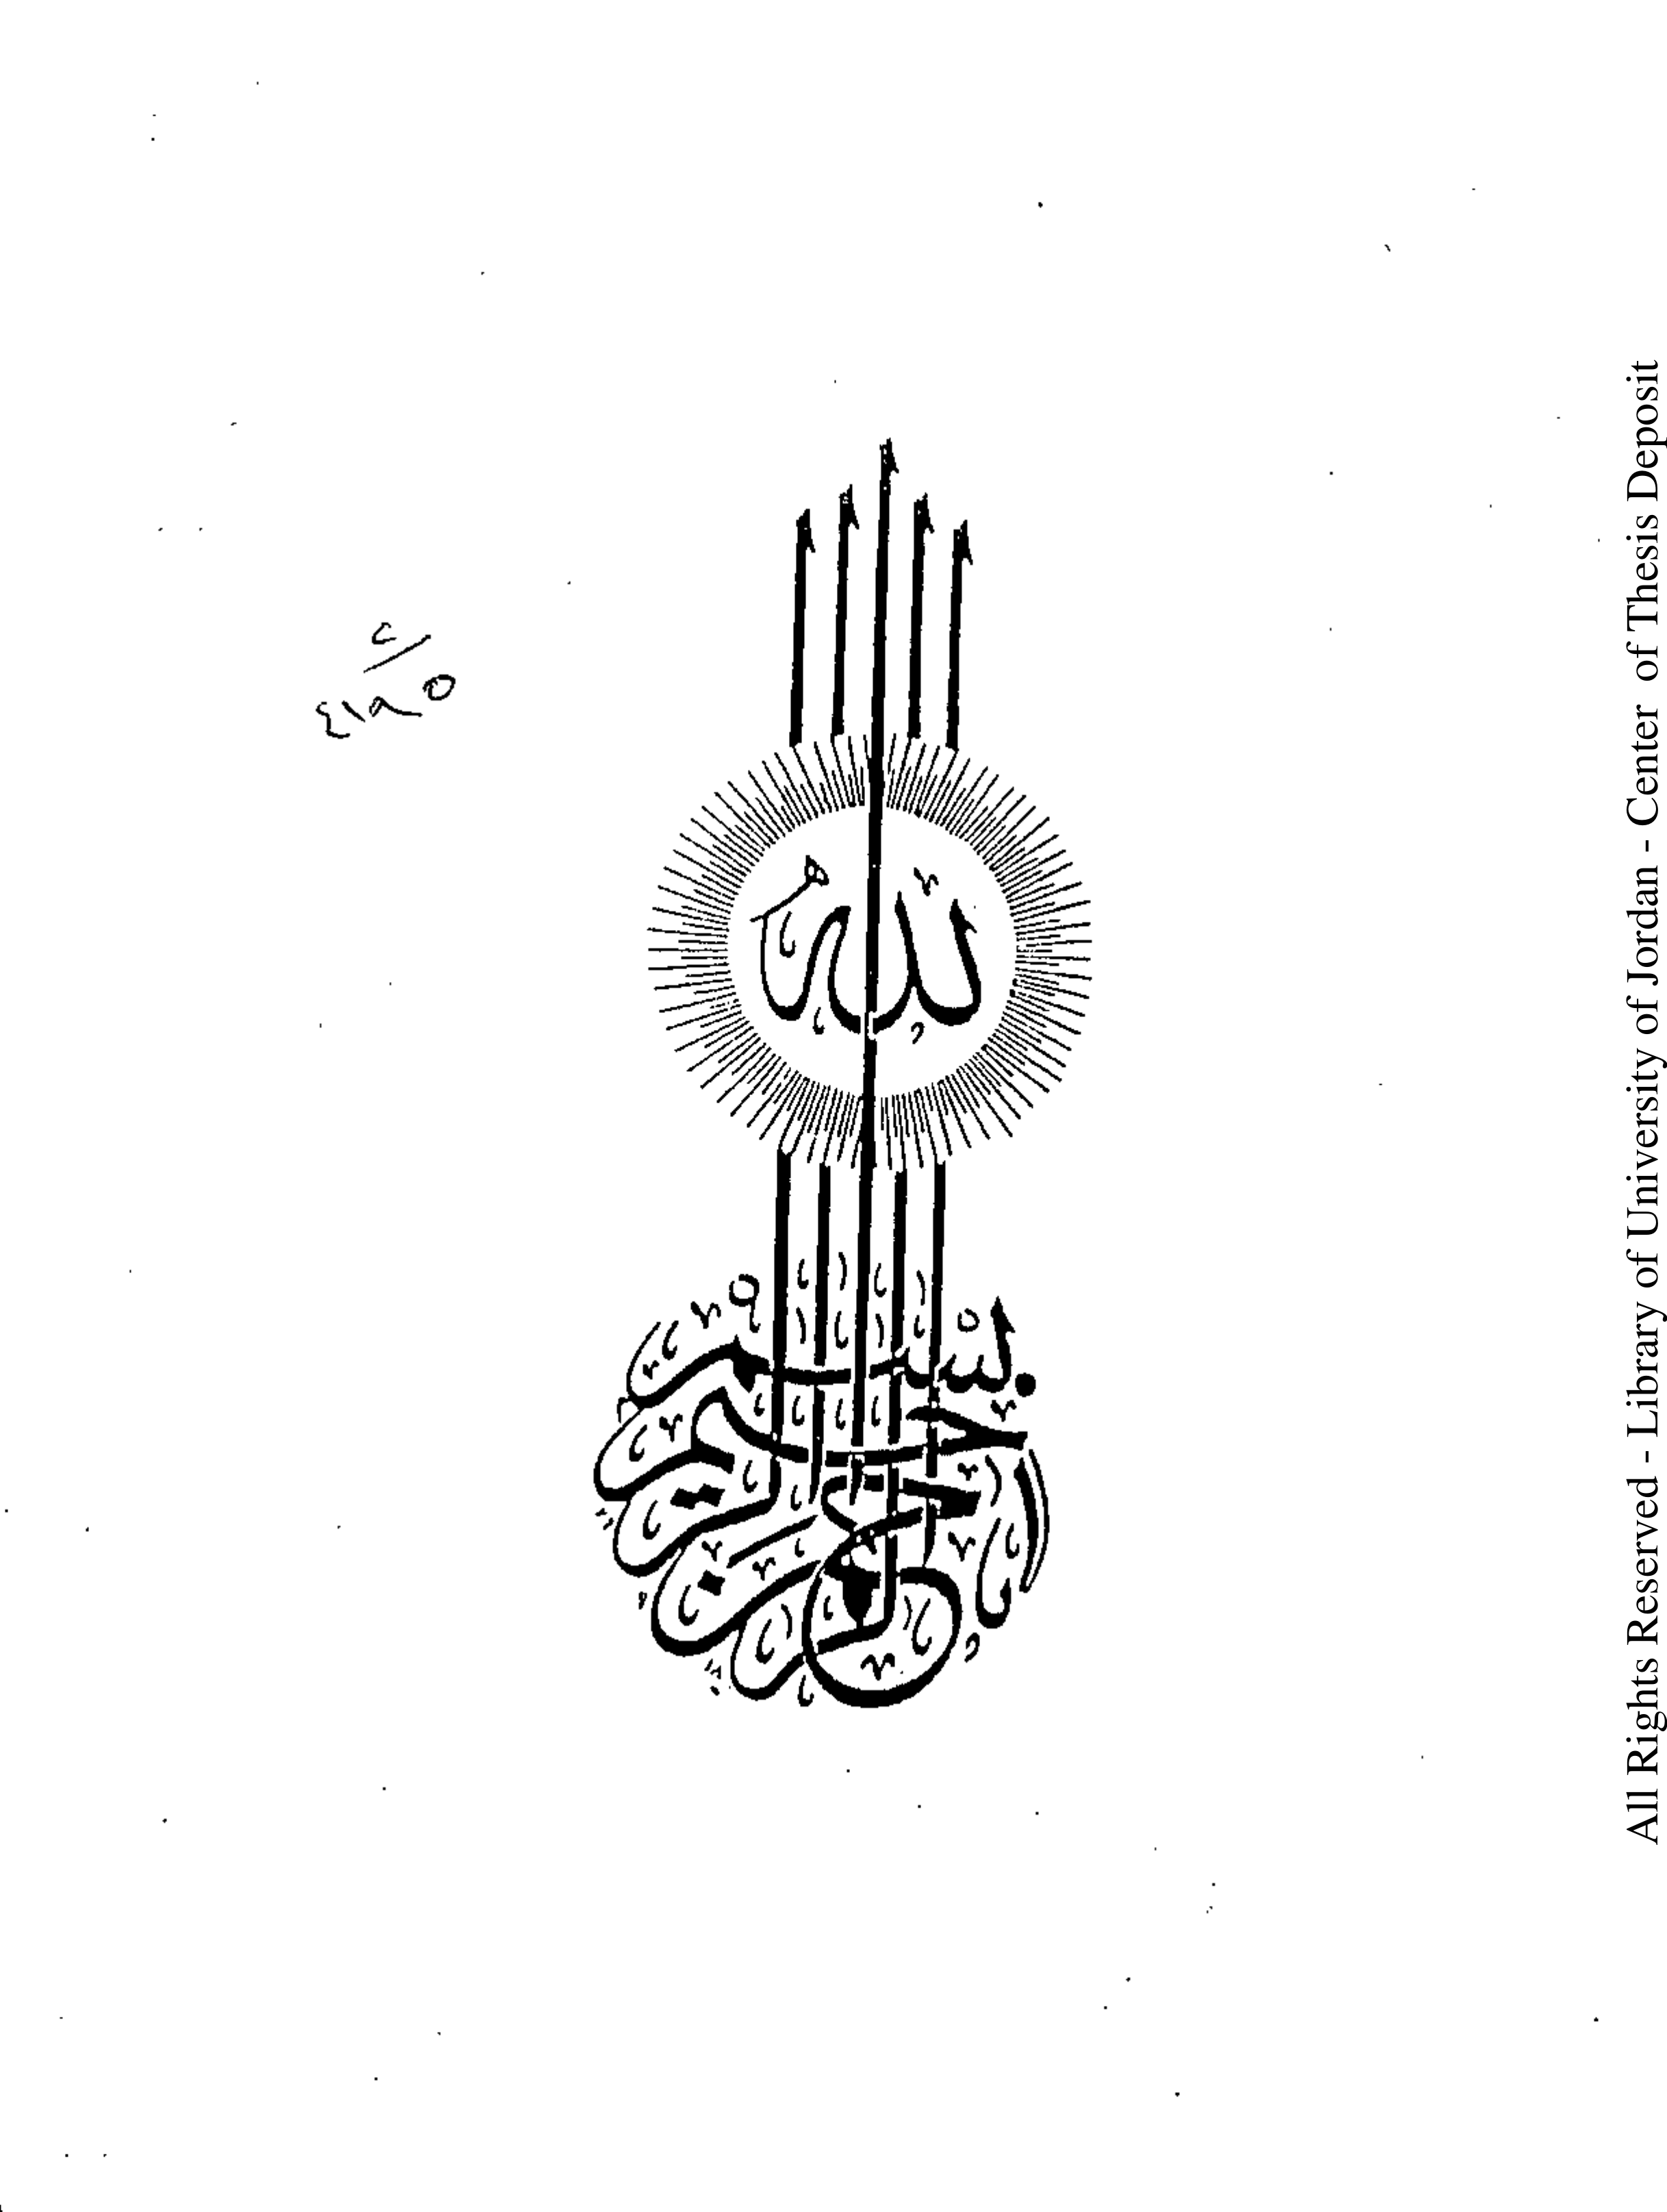 بسم الله الرحمن الرحيم
All Rights Reserved - Library of University of Jordan - Center of Thesis Deposit